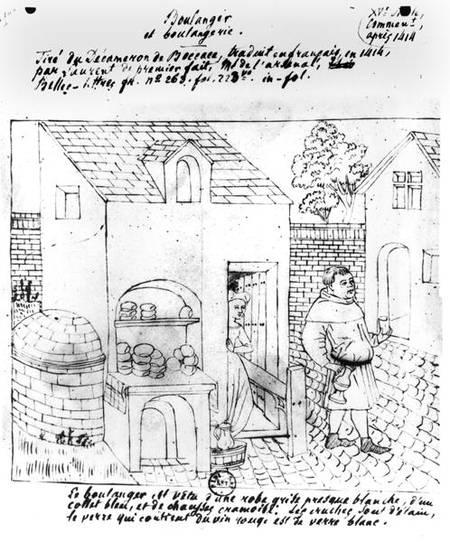 Boulanger
et boulangerie.
XVe Siècle,
Commenct,
après 1414
Tiré du Décameron de Boccace, traduit en français, en 1414,
par Laurent de premier fait, Ms de l'arsenal,
Belles-lettres fr. no 263. fol. 223 vo. in-fol.
Le boulanger est vêtu d'une robe grise presque blanche, d'un
collet bleu, et de chausses cramoisi. Les cruches sont d'étain,
le verre qui contient du vin rouge est de verre blanc.